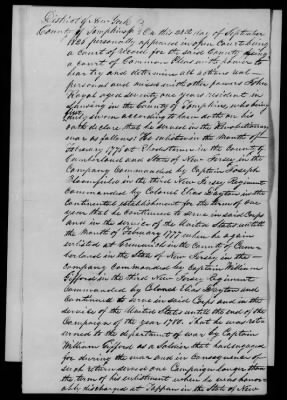 District of New York
County of Tompkins } On this 20th day of September
1820 personally appeared in open Court being
a court of Record for the said County being
a court of Common Pleas with power to
hear try and determine all actions real
personal and mixed with others James
Hough aged seventy one years resident in
Lansing in the County of Tompkins, who being
first
duly sworn according to law doth on his
oath declare that he served in the Revolutionary
war as follows: He enlisted in the Month of
February 1776 at in the County of
Cumberland and State of New Jersey in the
Company Commanded by Captain Joseph
Bloomfield in the third New Jersey Regiment
Commanded by Colonel Elias Dayton in the
Continental establishment for the term of one
year that he continued to serve in said Corps
and in the service of the United States until
the Month of February 1777 when he again
enlisted at Greenwich in the County of Cum-
berland in the State of New Jersey in the
Company Commanded by Captain William
Gifford in the third New Jersey Regiment
Commanded by Colonel Elias Dayton and
Continued to serve in said Corps and in the
service of the United States until the end of the
Campaign of the year 1780. That he was retur
ned to the department of war by Captain
William Gifford as a Soldier that had engaged
for during the war and in Consequence of
such return served one Campaign longer than
the term of his enlistment when he was honor-
ably discharged at Tappan in the State of New